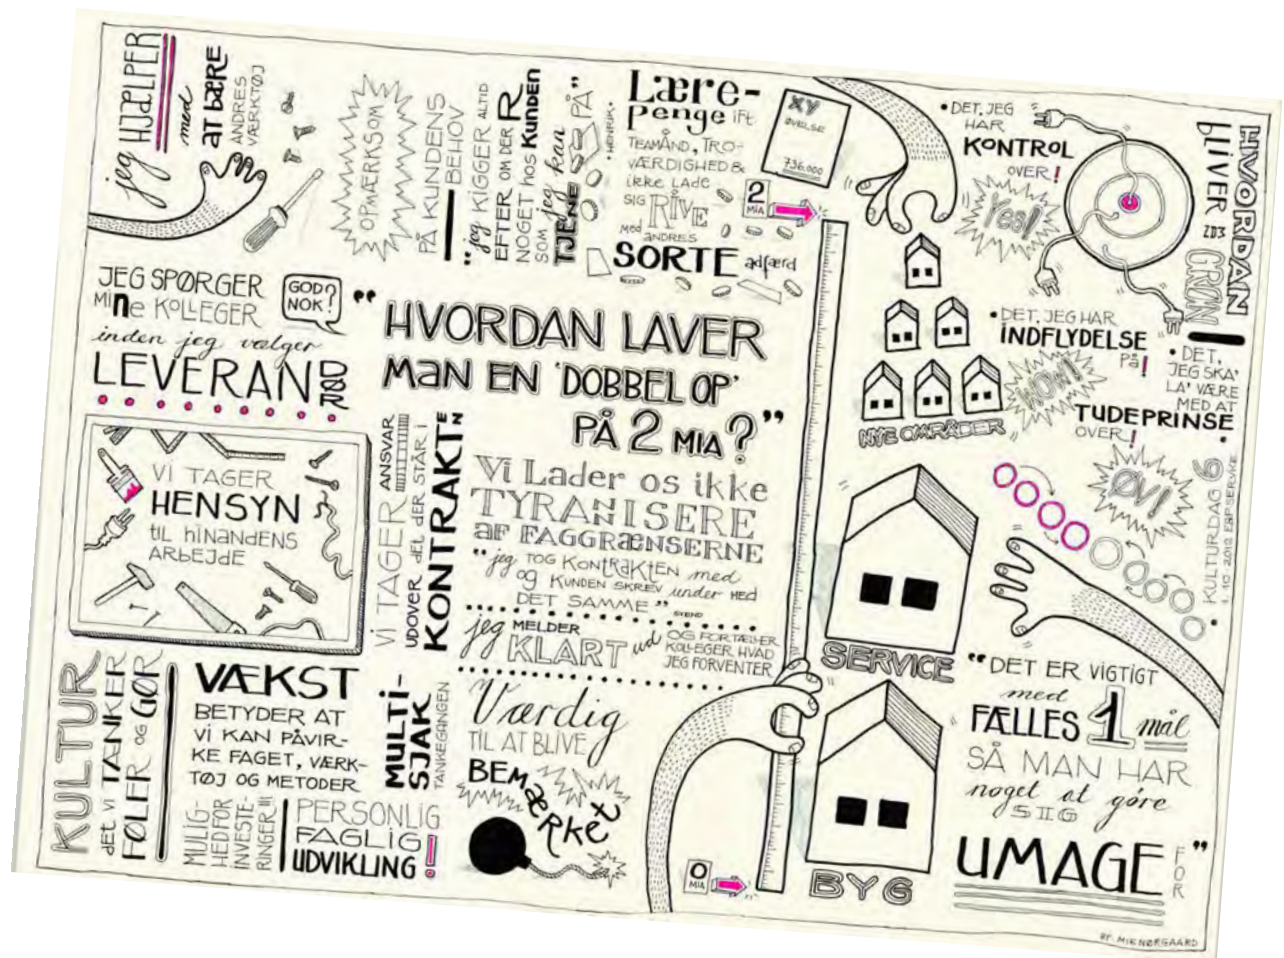 jeg HJÆLPER
med
at bære
ANDRES
VÆRKTØJ
OPMÆRKSOM
PÅ KUNDENS
BEHOV
"jeg KIGGER ALTID
EFTER OM DER R
NOGET hos KUNDEN
SOM jeg kan
TJENE PÅ"
• HENRIK •
Lære-
penge ift.
TEAMÅND, TRO-
VÆRDIGHED &
ikke LADE
SIG RIVE
Med ANDRES
SORTE adfærd
XY
ØVELSE
736.000
2
MIA
• DET, JEG
HAR
KONTROL
OVER!
Yes!
HVORDAN
bliver
2D3
GRØN
• DET, JEG HAR
INDFLYDELSE
På!
WOW!
• DET,
JEG SKA'
LA' VÆRE
MED AT
TUDEPRINSE
OVER!
ØV!
NYE OMRÅDER
JEG SPØRGER
MiNe KOLLEGER
GOD
NOK?
inden jeg vælger
LEVERANDØR
"HVORDAN LAVER
MAN EN 'DOBBEL OP'
PÅ 2 MIA?"
VI TAGER
HENSYN
til hinandens
ARBEJDE
Vi TAGER ANSVAR
UDOVER det der STÅR i
KONTRAKTEN
Vi Lader os ikke
TYRANNISERE
af FAGGRÆNSERNE
"jeg TOG KONTRAKTEN med
og KUNDEN SKREV under MED
DET SAMME"
SVEND
jeg MELDER
KLART ud
OG FORTÆLLER
KOLLEGER HVAD
JEG FORVENTER
KULTURDAG 6
SERVICE
KULTUR
det vi TÆNKER
FØLER OG GØR
VÆKST
BETYDER AT
VI KAN PÅVIR-
KE FAGET, VÆRK-
TØJ OG METODER
MULIG-
HED FOR
INVESTE-
RINGER!!!
PERSONLIG
FAGLIG
UDVIKLING!
MULTI-
SJAK
TANKEGANGEN
Værdig
TIL AT BLIVE
BEMÆRKET
0
MIA
BYG
"DET ER VIGTIGT
med
FÆLLES 1 mål
SÅ MAN HAR
noget at gøre
SIIG
UMAGE FOR"
BY: MIE NØRGAARD